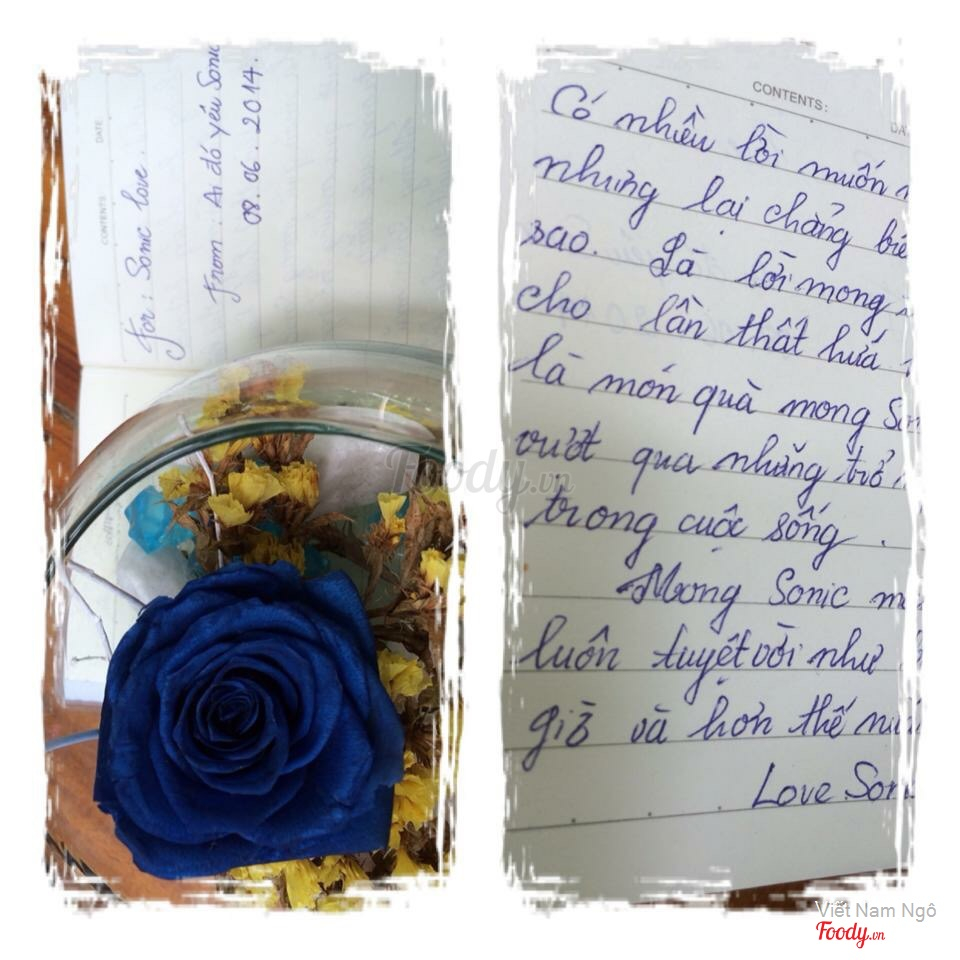 CONTENTS
DATE
For: Sonic love.
From: Ai đó yêu Sonic
08.06.2014.
CONTENTS:
DA
Có nhiều lời muốn
nhưng lại chẳng
sao. Là lời mong
cho lần thất hứa
là món quà mong
vượt qua những trở
trong cuộc sống.
Mong Sonic
luôn tuyệt vời như
giờ và hơn thế
Love
Foody.vn
Viết Nam Ngô
Foody.vn